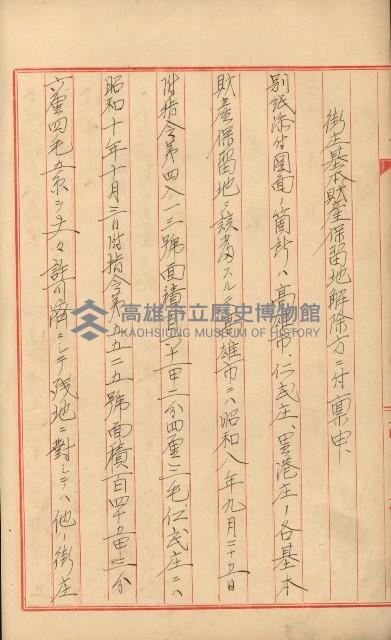 街庄基本財產保留地解除方ニ付稟申、
別紙添付圖面ノ箇所ハ高雄市、仁武庄、里港庄ノ各基本
財產保留地ニ該當スル 高雄市ニハ昭和八年九月二十五日
附指令第四八一三號面積 六十甲二分四厘二毛、仁武庄ニハ
昭和十年十月三日附指令第九五二五號面積百四十五甲三分
六厘四毛五糸ヲ夫々許可濟ニシテ残地ニ對シテハ他ノ街庄
高雄市立歷史博物館
KAOHSIUNG MUSEUM OF HISTORY